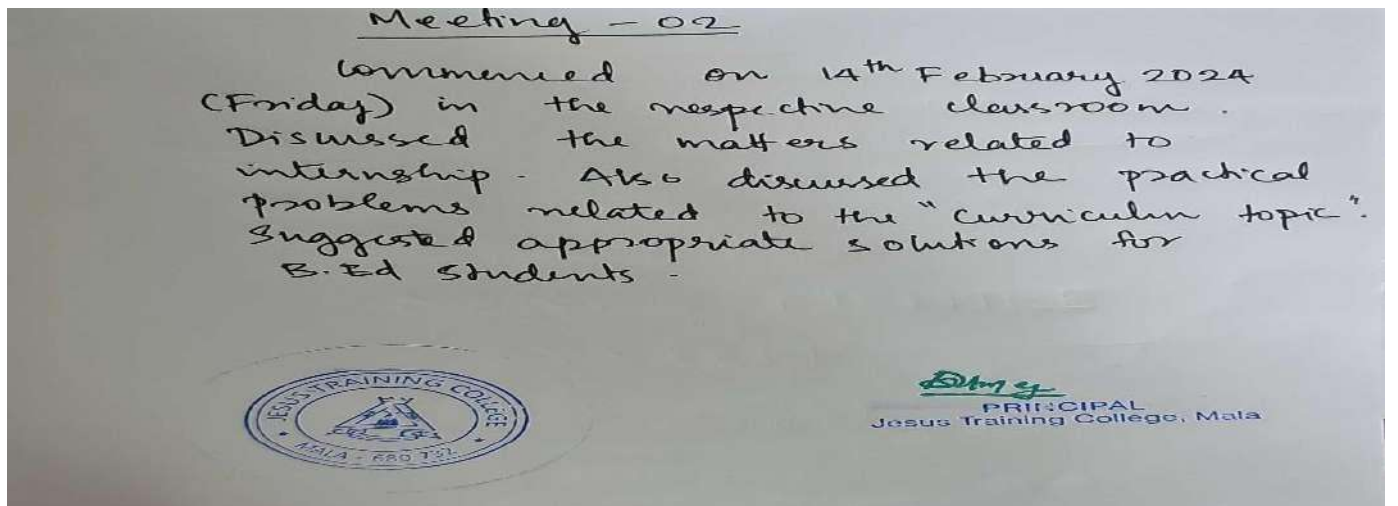 Meeting - 02
Commenced on 14th February 2024
(Friday) in the respective classroom.
Discussed the matters related to
internship. Also discussed the practical
problems related to the "curriculum topic".
Suggested appropriate solutions for
B.Ed Students.
JESUS TRAINING COLLEGE
MALA - 680 732
PRINCIPAL
Jesus Training College, Mala